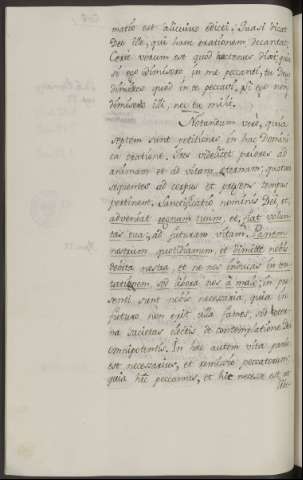 matio est alicuius edicti. Quasi dicat
Deo ille, qui hanc orationem decantat.
Certe verum est quod hactenus dixi, quia
si ego dimisero in me peccanti, tu Deus
dimittes quod in te peccavi, si ego non
dimisero illi, nec tu mihi.
Notandum vero, quia
septem sunt petitiones in hac Domini
ca oratione. Tres videlicet priores ad
animam et ad vitam æternam; quatuor
sequentes ad corpus et præsens tempus
pertinent. Sanctificatio nominis Dei, et,
adveniat regnum tuum, et, fiat volun
tas tua, ad futuram vitam. Panem
nostrum quotidianum, et dimitte nobis
debita nostra, et ne nos inducas in ten
tationem, sed libera nos à malo, in præ
senti sunt nobis necessaria, quia in
futuro non erit ulla fames, sed æter
na societas electis de contemplatione Dei
omnipotentis. In hac autem vita panis
est necessarius, et remissio peccatorum,
quia hic peccamus, et hic necesse est ut